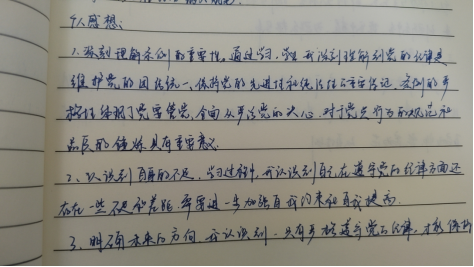 个人感想:
1.深刻理解条例的重要性。通过学习,我认识到理解到党的纪律是
维护党的团结统一、保持党的先进性和纯洁性的重要保证。条例的严
格性体现了党要管党、全面从严治党的决心,对于党员行为的规范和
品质的锤炼具有重要意义
2、认识到自身的不足。学习过程中,我认识到自己在遵守党的纪律方面还
存在一些不足和差距,需要进一步加强自我约束和自我提高
3、明确未来的方向。我认识到,只有严格遵守党的纪律,才能保持